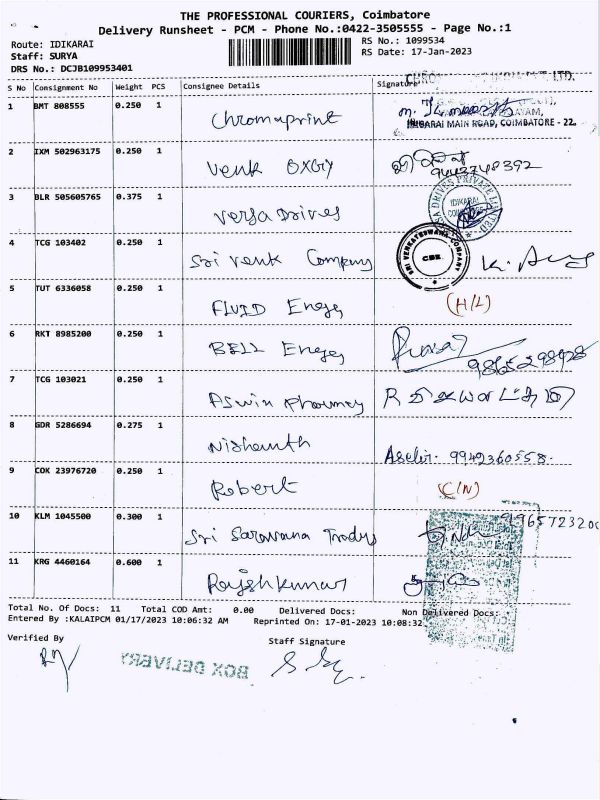 THE PROFESSIONAL COURIERS, Coimbatore
Delivery Runsheet - PCM - Phone No.:0422-3505555 - Page No.:1
Route: IDIKARAI RS No.: 1099534
Staff: SURYA RS Date: 17-Jan-2023
DRS No.: DCJB109953401
S No Consignment No Weight PCS Consignee Details Signature
1 BMT 808555 0.250 1 Chromaprint
IDIKARAI MAIN ROAD, COIMBATORE - 22.
2 IXM 502963175 0.250 1 Venk OXGY 9443748392
3 BLR 505605765 0.375 1 Versa Drives
SA DRIVES PRIVATE LIMITED
IDIKARAI
4 TCG 103402 0.250 1 Sri Venk Company
SRI VENKATESWARA COMPANY
CBE
5 TUT 6336058 0.250 1 FLUID Engg (H/L)
6 RKT 8985200 0.250 1 BELL Engg 9865298428
7 TCG 103021 0.250 1 Aswin Pharmacy
8 GDR 5286694 0.275 1 Nishanth 9942360558.
9 COK 23976720 0.250 1 Robert (C/N)
10 KLM 1045500 0.300 1 Sri Saravana Traders
11 KRG 4460164 0.600 1 Rajeshkumar
Total No. Of Docs: 11 Total COD Amt: 0.00 Delivered Docs: Non Delivered Docs:
Entered By :KALAIPCM 01/17/2023 10:06:32 AM Reprinted On: 17-01-2023 10:08:32
Verified By Staff Signature
BOX DELIVERY